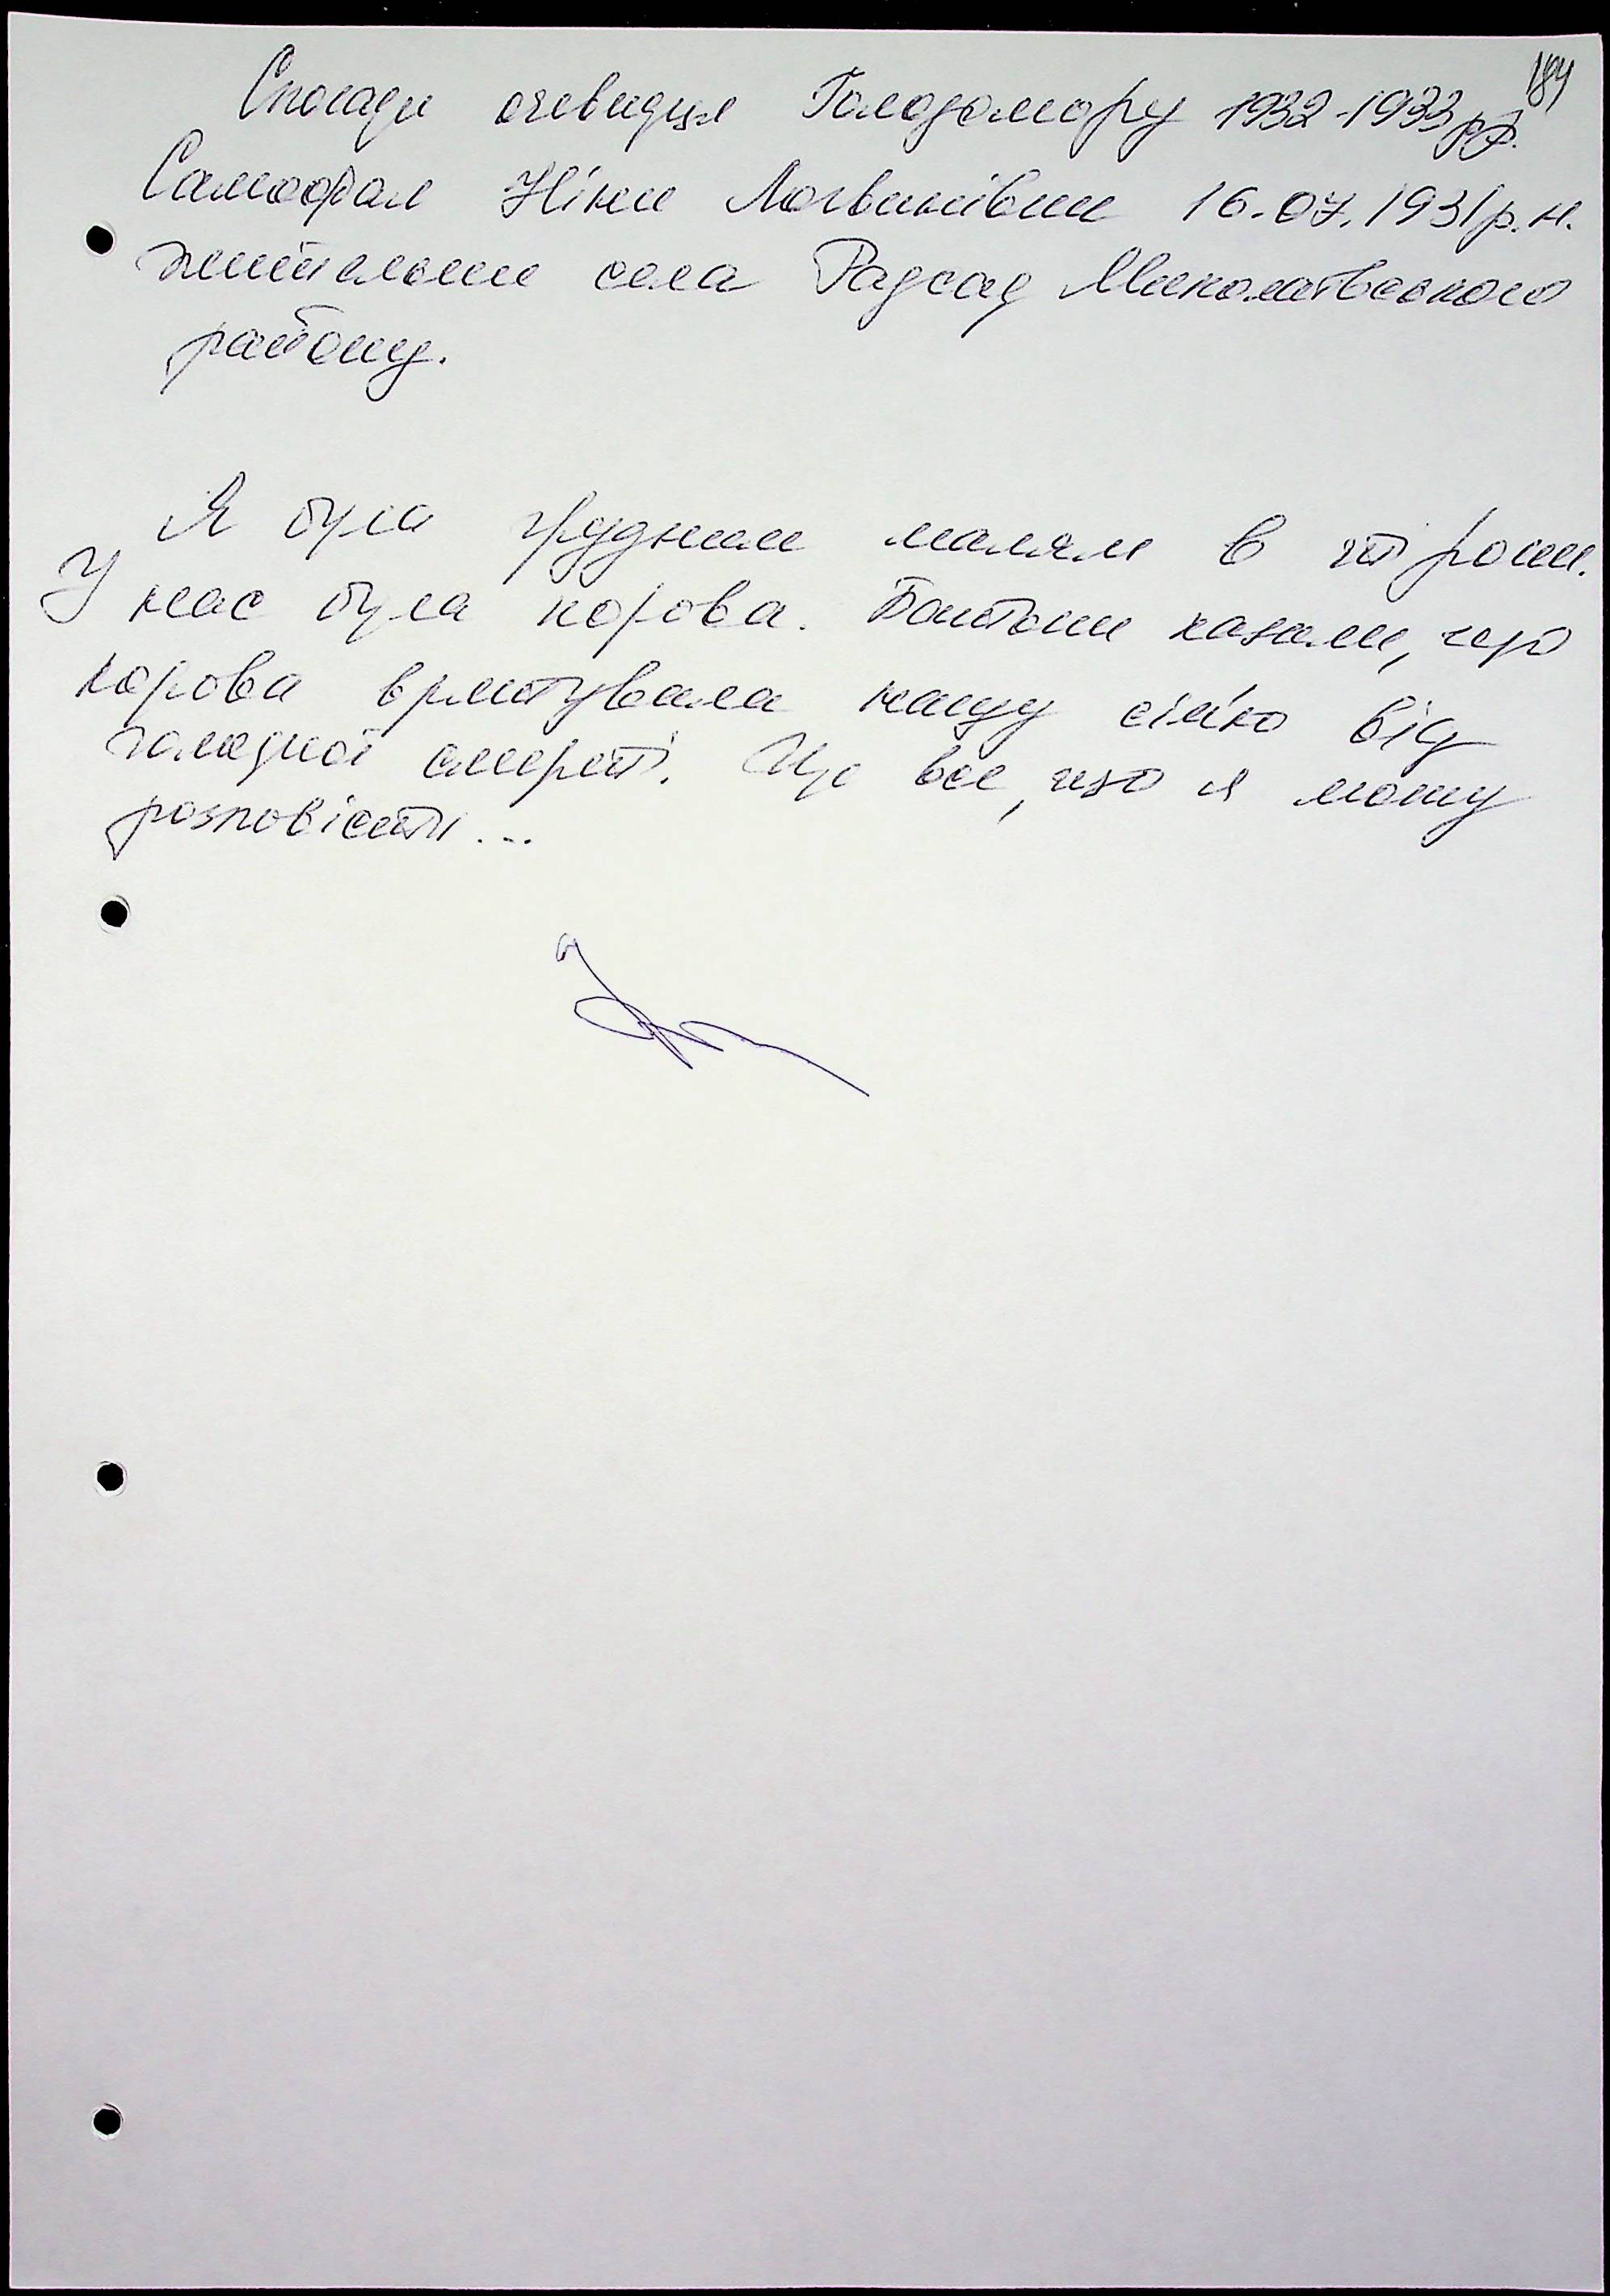 184
Спогади очевидця Голодомору 1932-1933 рр.
Самофал Ніни Логвинівни 16.07.1931 р.н.
жительки села Радсад Миколаївського
району.
Я була грудним малям в ті роки.
У нас була корова. Батьки казали, що
корова врятувала нашу сім'ю від
голодної смерті. Це все, що я можу
розповісти...